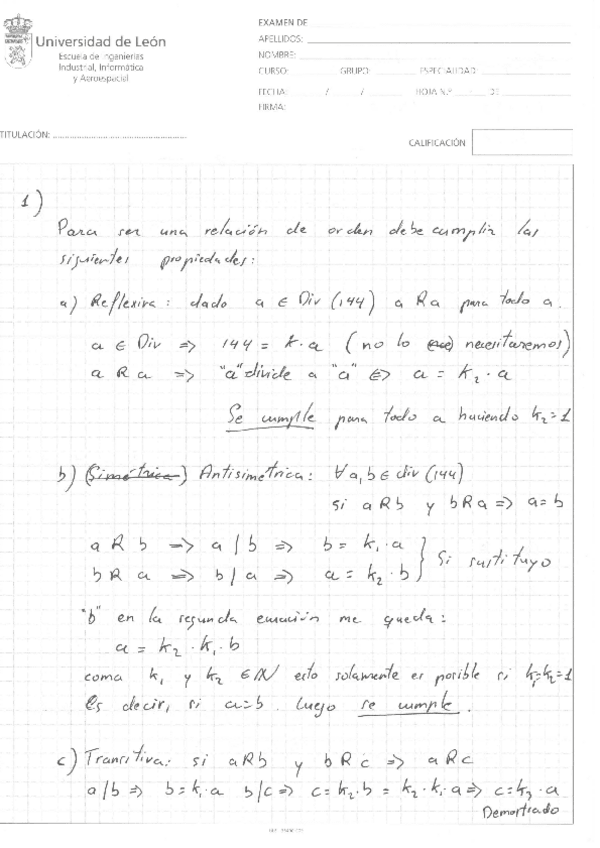 Universidad de León
Escuela de Ingenierías
Industrial, Informática
y Aeroespacial
EXAMEN DE
APELLIDOS:
NOMBRE:
CURSO: GRUPO: ESPECIALIDAD:
FECHA: / / HOJA N.º DE
FIRMA:
TITULACIÓN:
CALIFICACIÓN
1)
Para ser una relación de orden debe cumplir las
siguientes propiedades:
a) Reflexiva: dado a ∈ Div (144) a R a para todo a.
a ∈ Div => 144 = k·a (no lo necesitaremos)
a R a => "a" divide a "a" <=> a = k₂·a
Se cumple para todo a haciendo k₂=1
b) (Simétrica) Antisimétrica: ∀a,b ∈ div (144)
si aRb y bRa => a=b
a R b => a/b => b = k₁·a } Si sustituyo
b R a => b/a => a = k₂·b
"b" en la segunda ecuación me queda:
a = k₂·k₁·b
como k₁ y k₂ ∈ ℕ esto solamente es posible si k₁=k₂=1
Es decir, si a=b. Luego se cumple.
c) Transitiva: si aRb y bRc => aRc
a/b => b=k₁·a b/c => c=k₂·b = k₂·k₁·a => c=k₃·a
Demostrado